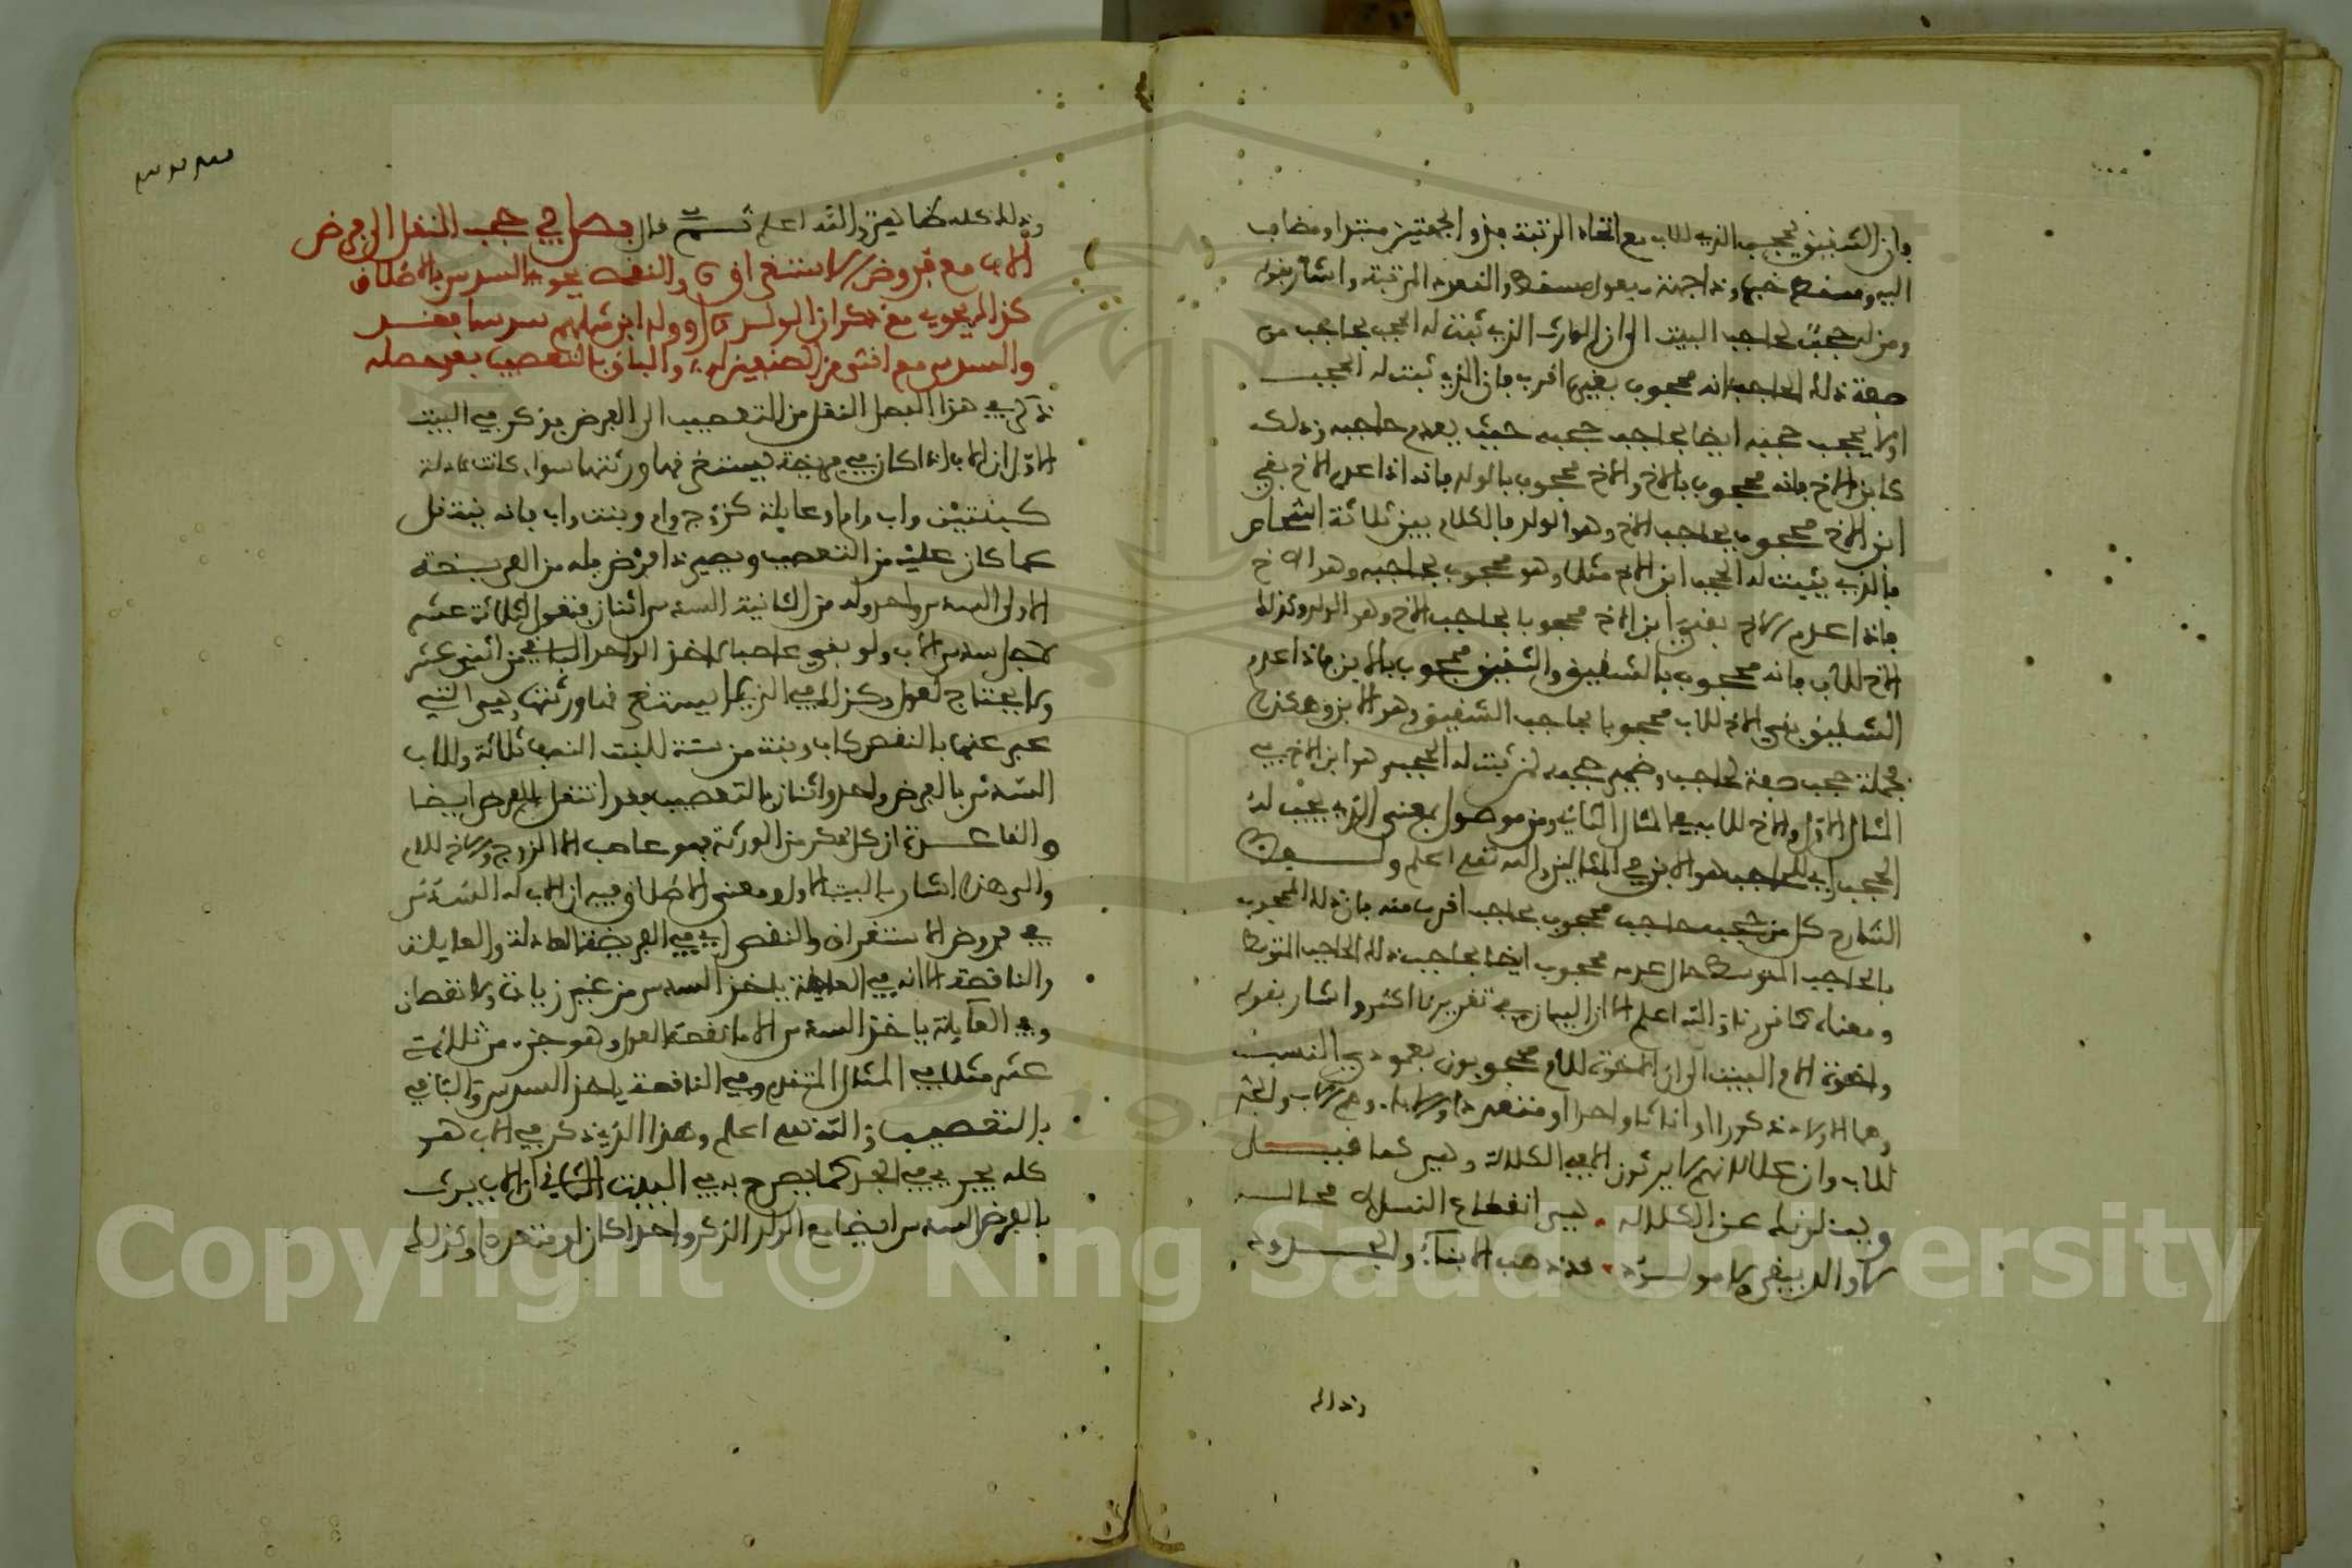 وان الشقيق يحجب الذي للاب مع اتحاد الرتبة وذو الجهتين مبتدا ومضاف
اليه ومسقط خبر وذا جهة مفعول مسقط والقعدد المرتبة واشار بقوله
ومن له حجب بحاجب البيت الى ان الوارث الذي ثبت له الحجب بحاجب من
صفة ذلك الحاجب انه محجوب بغيره اقرب فان الذي ثبت له الحجب
اولا يحجب حجبه ايضا بحاجب حجبه حيث يعدم حاجبه وذلك
كابن الاخ فانه محجوب بالاخ والاخ محجوب بالولد فانه اذا عدم الاخ بقي
ابن الاخ محجوب بحاجب الاخ وهو الولد فالكلام بين ثلاثة اشخاص
فالذي يثبت له الحجب ابن الاخ مثلا وهو محجوب بحاجبه وهو الاخ
فاذا عدم الاخ بقي ابن الاخ محجوبا بحاجب الاخ وهو الولد وكذلك
الاخ للاب فانه محجوب بالشقيق والشقيق محجوب بالابن فاذا عدم
الشقيق بقي الاخ للاب محجوبا بحاجب الشقيق وهو الابن وهكذا
فجملة حجب صفة لحاجب وضمير حجبه لمن ثبت له الحجب وهو ابن الاخ في
المثال الاول والاخ للاب في المثال الثاني ومن موصول بمعنى الذي يجب له
الحجب اي للحاجب هو الابن في المثالين والله تعلى اعلم
الشارح كل من حجبه حاجب محجوب بحاجب اقرب منه فان ذلك المحجوب
بالحاجب المتوسط حال عدمه محجوب ايضا بحاجب ذلك الحاجب المتوسط
ومعناه كما قررناه والله اعلم الا ان البيان في تقريرنا اكثر واشار بقوله
واخوة الام البيت الى ان الاخوة للام محجوبون بعمودي النسب
وهما الاولاد ذكورا او اناثا واحدا او متعددا والاباء وهم الاب والجد
للاب وان علا لانهم لا يرثون الا في الكلالة وهي كما قيل
ويسئلونك عن الكلاله هي انقطاع النسل لا محاله
لا والد يبقى ولا مولود قد ذهب الابناء والجدود
وذلك
وذلك كله ظاهر والله اعلم ثم قال فصل في حجب النقل الى فرض
الاب مع فروض الاستغراق والنقص يحوي السدس بالاطلاق
كذاك يحوي مع ذكران الولد او ولد ابن مثلهم سدسا فقد
والسدس مع انثى من الصنفين له والباقي بالتعصيب بعد حصله
ذكر في هذا الفصل النقل من التعصيب الى الفرض فذكر في البيت
الاول ان الاب اذا كان في فريضة يستغرقها ورثتها سواء كانت عادلة
كبنتين واب وام او عايلة كزوج وام وبنت واب فانه ينتقل
عما كان عليه من التعصيب ويصير ذا فرض فله من الفريضة
الاولى السدس واحد وله من الثانية السدس اثنان فتعول لثلاثة عشر
لاجل سدس الاب ولو بقي عاصبا لاخذ الواحد الباقي من اثني عشر
ولا يحتاج لعول وكذلك في التي لا يستغرقها ورثتها وهي التي
عبر عنها بالنقص كاب وبنت من ستة للبنت النصف ثلاثة وللاب
السدس بالفرض واحد واثنان بالتعصيب فقد انتقل للفرض ايضا
والقاعدة ان كل ذكر من الورثة فهو عاصب الا الزوج والاخ للام
والى هذا اشار بالبيت الاول ومعنى الاطلاق فيه ان الاب له السدس
في فروض الاستغراق والنقص اي في الفريضة العادلة والعايلة
والناقصة الا انه في العادلة ياخذ السدس من غير زيادة ولا نقصان
وفي العايلة ياخذ السدس الا ما نقصه العول وهو جزء من ثلاثة
عشر مثلا في المثال المتقدم وفي الناقصة ياخذ السدس والباقي
بالتعصيب والله تعلى اعلم وهذا الذي ذكر في الاب هو
كله يجري في الجد كما يصرح به في البيت الثاني ان الاب يرث
بالفرض السدس ايضا مع الولد الذكر واحدا كان او متعددا وكذلك